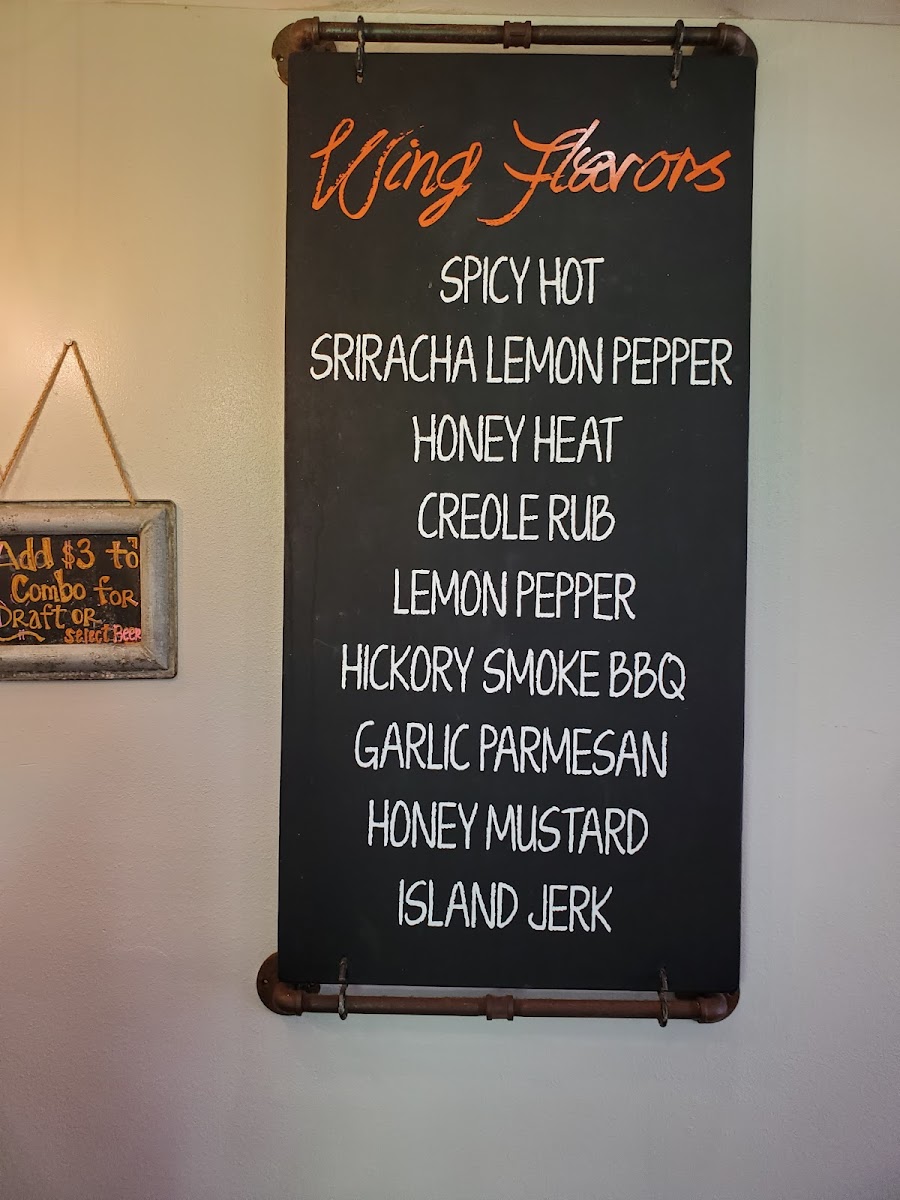 Wing Flavors
SPICY HOT
SRIRACHA LEMON PEPPER
HONEY HEAT
CREOLE RUB
LEMON PEPPER
HICKORY SMOKE BBQ
GARLIC PARMESAN
HONEY MUSTARD
ISLAND JERK
Add $3 to
Combo for
Draft or
select Beer